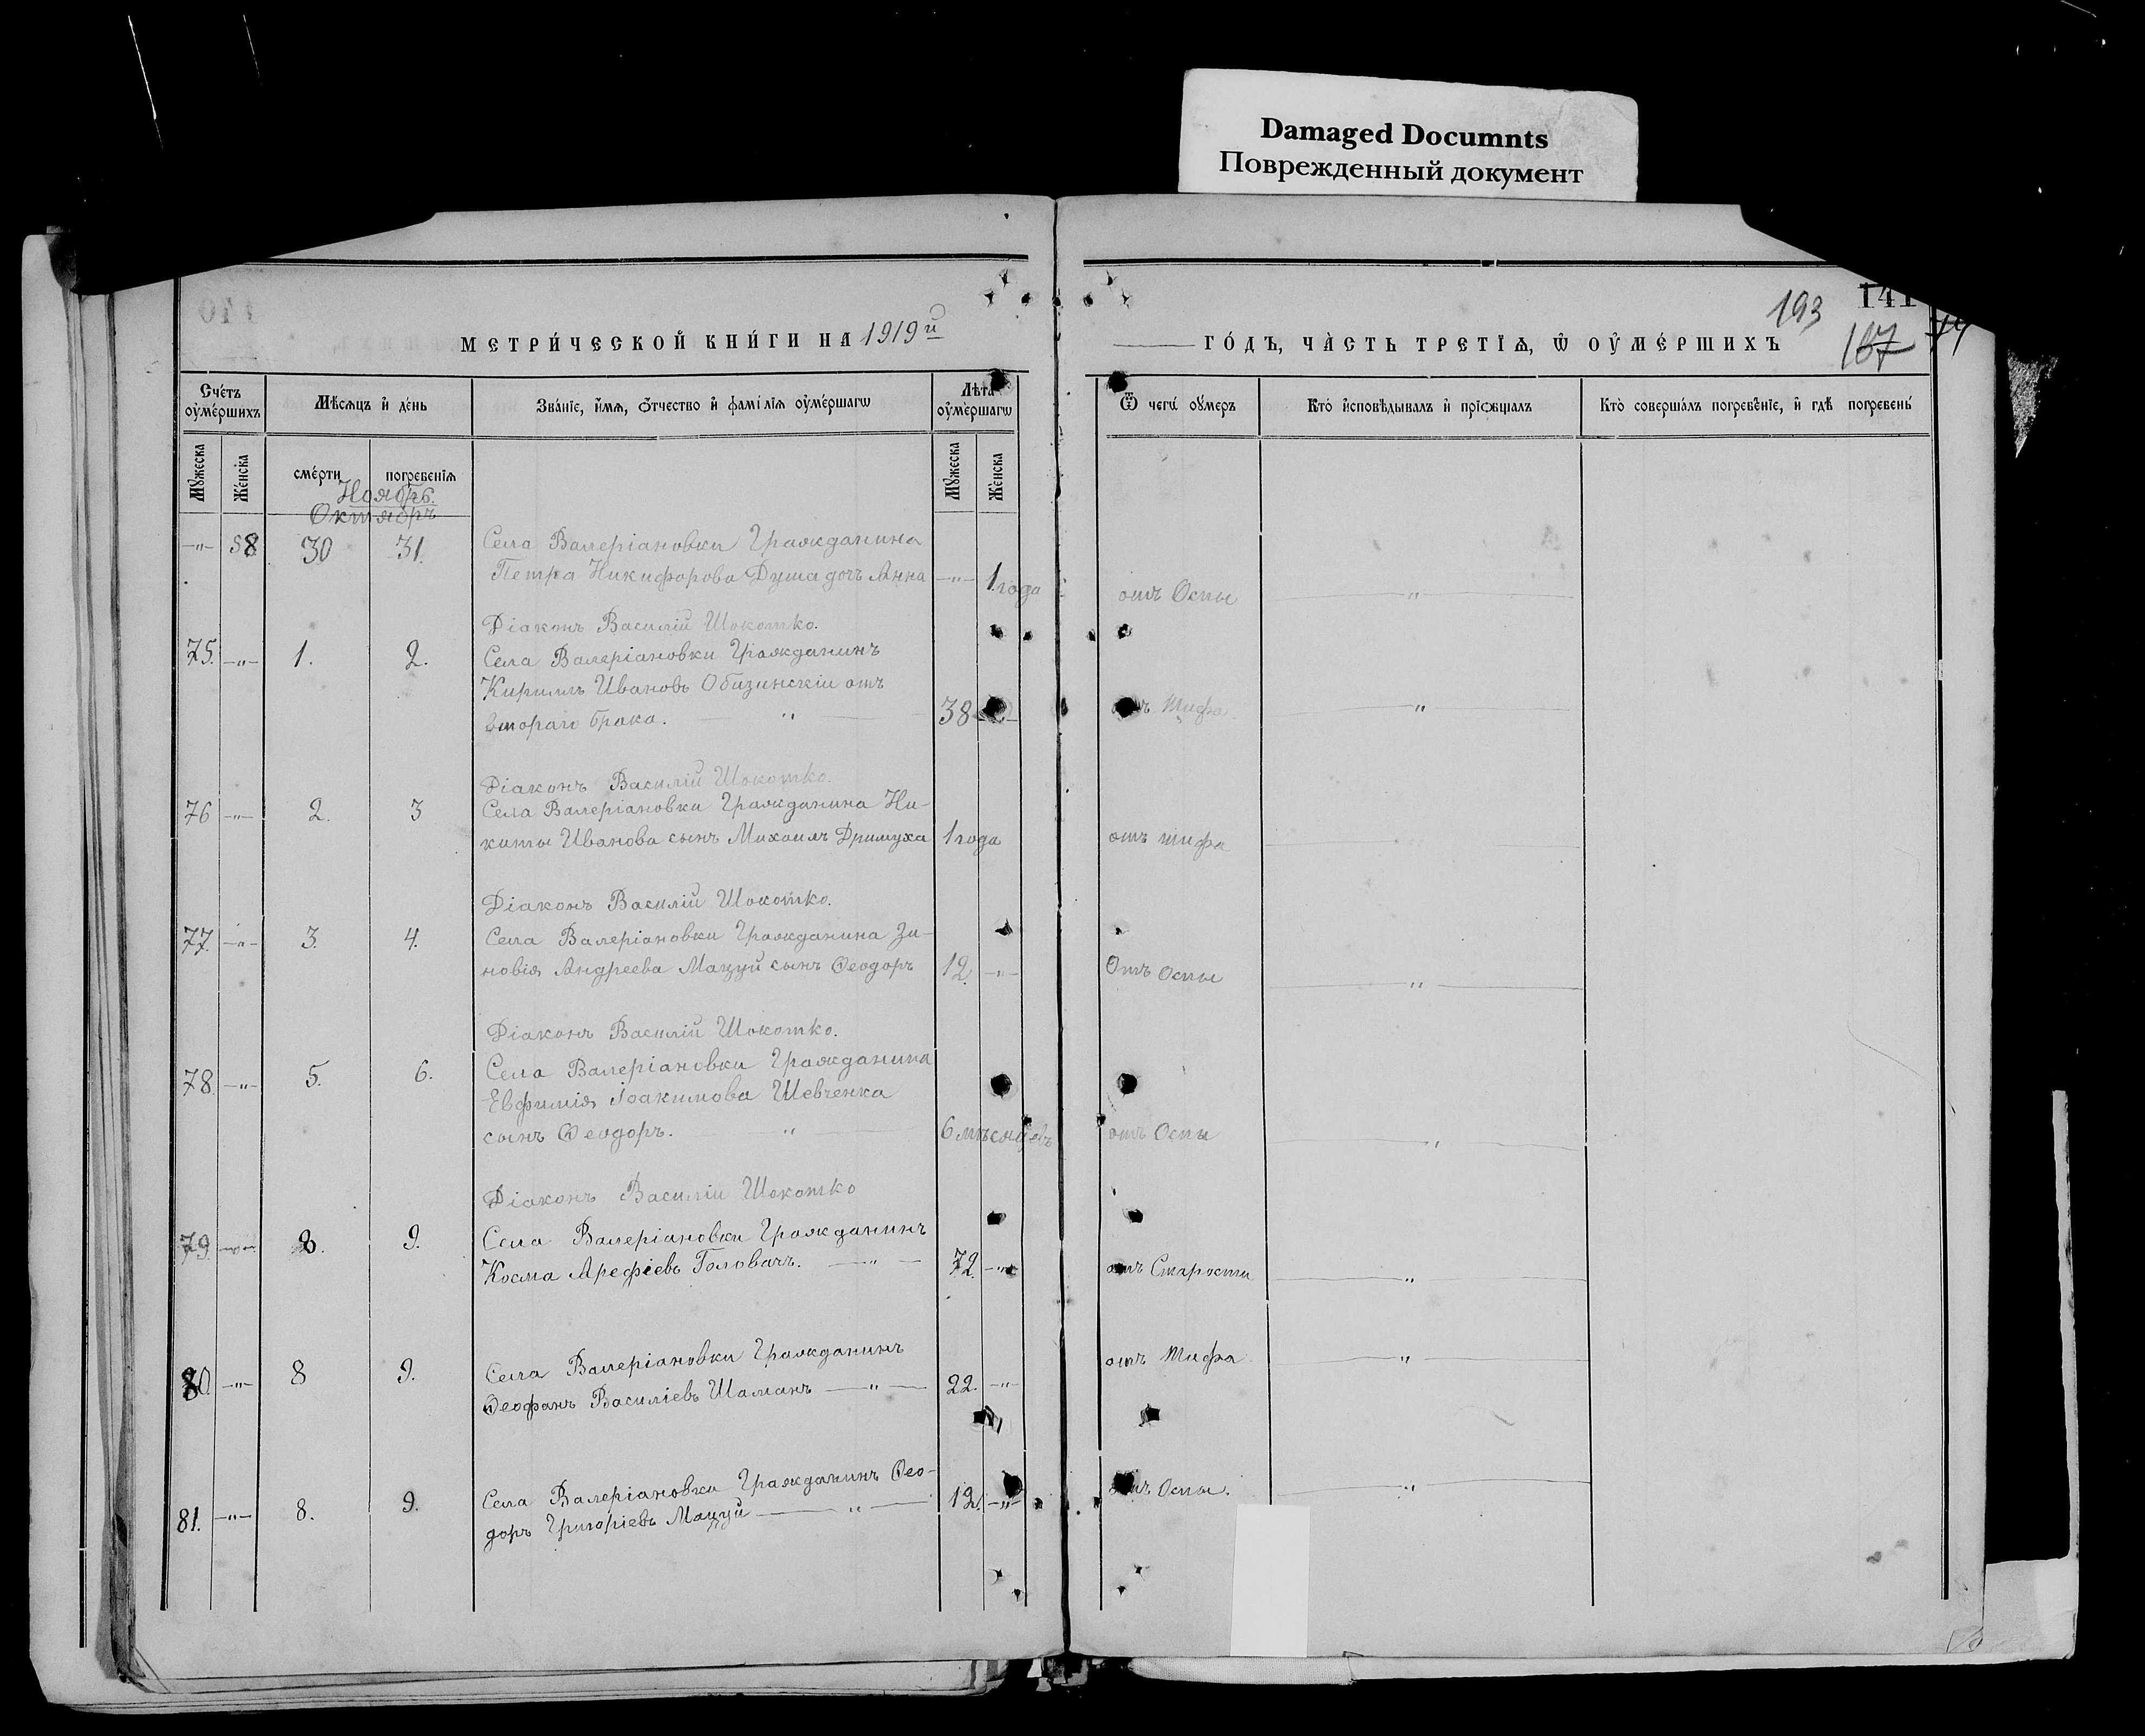 Damaged Documnts
Поврежденный документ
193
141
167
МЕТРИ́ЧЕСКОЙ КНИ́ГИ НА 1919й
ГО́ДЪ, ЧА̀СТЬ ТРЕТІ́Ѧ, Ѽ ОУ҆МЕ́РШИХЪ
Сче́тъ оу҆ме́ршихъ
Мѣ́сѧцъ и҆ де́нь
Зва́ніе, и҆́мѧ, ѻ҆́тчество и҆ фамі́лїѧ оу҆ме́ршагѡ
Лѣ́та оу҆ме́ршагѡ
Ѿ чегѡ̀ оу҆́меръ
Кто̀ и҆сповѣ́дывалъ и҆ прїѡбща́лъ
Кто̀ соверша́лъ погребе́нїе, и҆ гдѣ̀ погребены̀
Мꙋ́жеска
Же́нска
сме́рти
погребе́нїѧ
Мꙋ́жеска
Же́нска
Ноябрь.
Октябрь
—"— 58 30 31. Села Валеріановки Гражданина
Петра Никифорова Душа дочь Анна —"— 1 года отъ Оспы —"—
Діаконъ Василій Шокотко.
75. —"— 1. 2. Села Валеріановки Гражданинъ
Кириллъ Ивановъ Обизинскій отъ
втораго брака. —"— 38 отъ Тифа —"—
Діаконъ Василій Шокотко.
76 —"— 2. 3 Села Валеріановки Гражданина Ни-
киты Иванова сынъ Михаилъ Дримуха 1 года отъ тифа
Діаконъ Василій Шокотко.
77. —"— 3. 4. Села Валеріановки Гражданина Зи-
новія Андреева Мацуй сынъ Ѳеодоръ 12. —"— Отъ Оспы —"—
Діаконъ Василій Шокотко.
78. —"— 5. 6. Села Валеріановки Гражданина
Евфимія Іоакимова Шевченка
сынъ Ѳеодоръ. —"— 6 мѣсяцевъ отъ Оспы —"—
Діаконъ Василій Шокотко
79. —"— 8. 9. Села Валеріановки Гражданинъ
Косма Арефіевъ Головачъ. —"— 72. —"— отъ Старости —"—
80 —"— 8 9. Села Валеріановки Гражданинъ
Ѳеофанъ Василіевъ Шаманъ —"— 22. —"— отъ Тифа —"—
81. —"— 8. 9. Села Валеріановки Гражданинъ Ѳео-
доръ Григоріевъ Мацуй —"— 12. —"— отъ Оспы. —"—